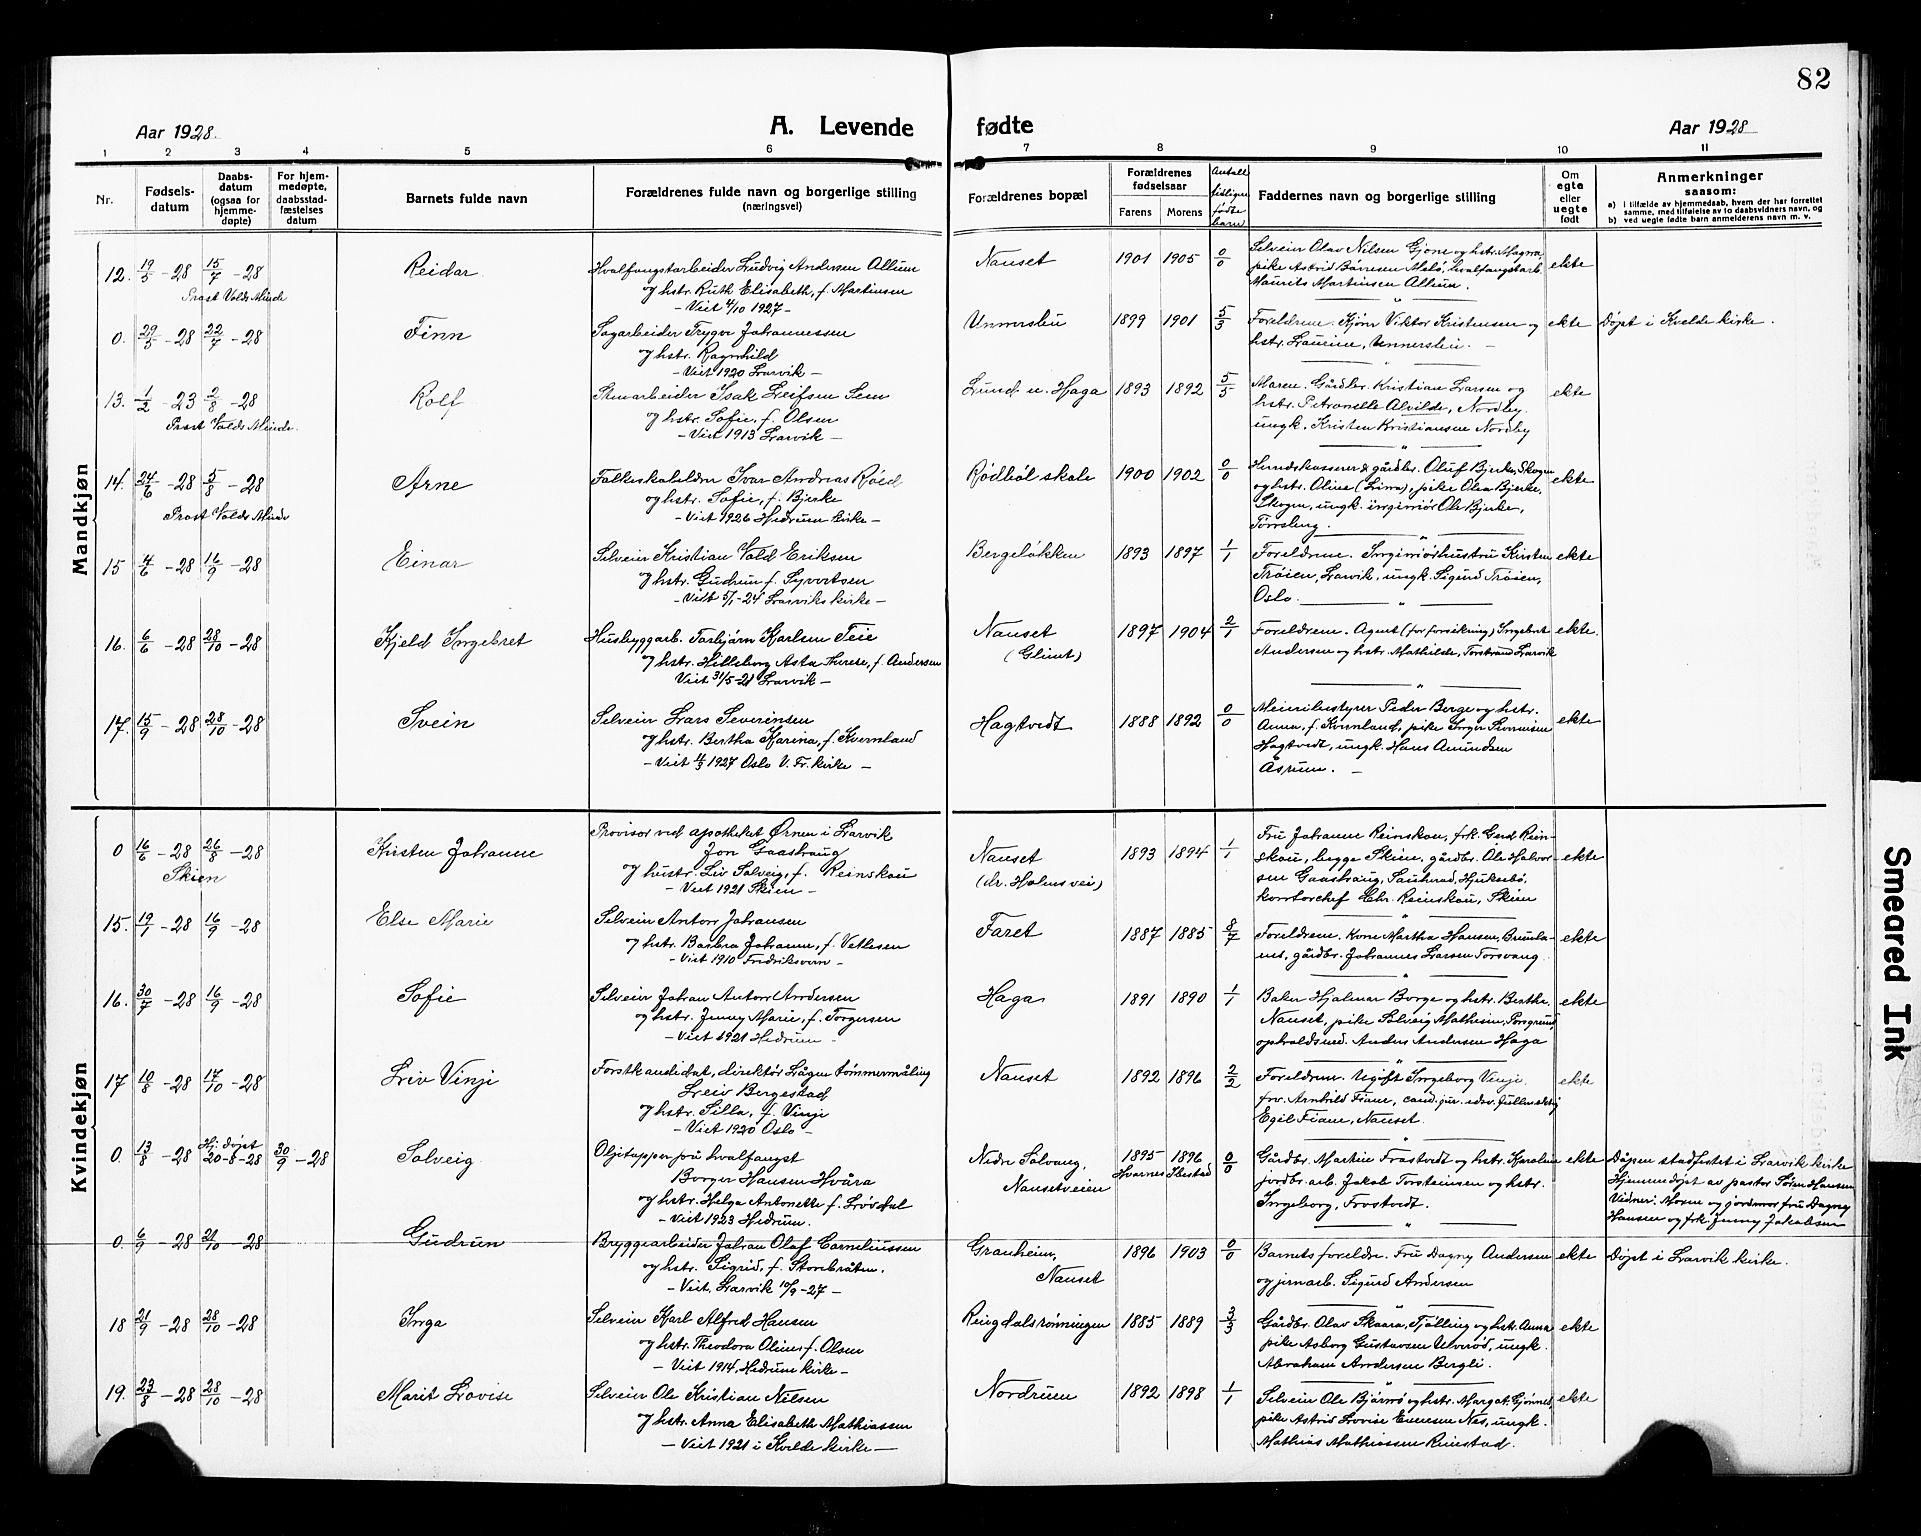 82
Aar 1928.
A. Levende fødte
Aar 1928
1 2 3 4 5 6 7 8 9 10 11
Nr.
Fødsels-
datum
Daabs-
datum
(ogsaa for
hjemme-
døpte)
For hjem-
medøpte,
daabsstad-
fæstelses
datum
Barnets fulde navn
Forældrenes fulde navn og borgerlige stilling
(næringsvei)
Forældrenes bopæl
Forældrenes
fødselsaar
Farens Morens
Antall
tidligere
fødte
barn
Faddernes navn og borgerlige stilling
Om
egte
eller
uegte
født
Anmerkninger
saasom:
a) I tilfælde av hjemmedaab, hvem der har forrettet
samme, med tilføielse av to daabsvidners navn, og
b) ved uegte fødte barn anmelderens navn m. v.
Mandkjøn
12. 19/5 - 28 15/7 - 28
Prost Volds Minde
Reidar
Hvalfangstarbeider Ludvig Andersen Allum
og hstr. Ruth Elisabeth, f. Martinsen
- Viet 4/10 1927 -
Nanset 1901 1905 0/0
Selveier Olav Nilsen Gjone og hstr. Magna,
pike Astrid Barresen Melø, hvalfangstarb.
Maurits Martinsen Allum.
ekte
0. 29/5 - 28 22/7 - 28
Finn
Sagarbeider Trygve Johannessen
og hstr. Ragnhild
- Viet 1920 Larvik -
Unnersbu 1899 1901 5/3
Foreldrene. Kjører Viktor Kristensen og
hstr. Laurine, Unnersbu. -
ekte
Døpt i Kvelde kirke.
13. 1/2 - 23 2/8 - 28
Prost Volds Minde.
Rolf
Stenarbeider Isak Leifsen Sem
og hstr. Sofie, f. Olsen
- Viet 1913 Larvik -
Lund u. Haga 1893 1892 5/5
Moren. Gårdbr. Kristian Larsen og
hstr. Petronelle Alvilde, Nordby.
ungk. Kristen Kristiansen Nordby
ekte
14. 24/6 - 28 5/8 - 28
Prost Volds Minde
Arne
Folkeskolelærer Ivar Andreas Røed
og hstr. Sofie, f. Bjerke
- Viet 1926 Hedrum kirke -
Rødbøl skole 1900 1902 0/0
Herredskasserer & gårdbr. Oluf Bjerke, Skogen
og hstr. Oline (Lina), pike Olea Bjerke,
Skogen, ungk. ingeniør Ole Bjerke,
Tønsberg.
ekte
15 4/6 - 28 16/9 - 28
Einar
Selveier Kristian Vold Eriksen
og hstr. Gudrun f. Syvertsen
- Viet 5/1 - 24 Larviks kirke -
Bergeløkken 1893 1897 1/1
Foreldrene. Ingeniørhustru Kirsten
Trøien, Larvik, ungk. Sigurd Trøien,
Oslo.
ekte
16. 6/6 - 28 28/10 - 28
Kjeld Ingebret
Husbyggarb. Torbjørn Karlsen Teie
og hstr. Hilleborg Asta Therese, f. Andersen
Viet 31/5 - 21 Larvik -
Nanset
(Glimt)
1897 1904 2/1
Foreldrene. Agent (for forsikring) Ingebret
Andersen og hstr. Mathilde, Torstrand Larvik
ekte.
17. 15/9 - 28 28/10 - 28
Svein
Selveier Lars Severinsen
og hstr. Bertha Karina, f. Kvernland
- Viet 4/3 1927 Oslo V. Fr. kirke -
Hagtvedt 1888 1892 0/0
Meieribestyrer Peder Berge og hstr.
Anna, f. Kvernland, pike Inger Severinsen
Hagtvedt, ungk. Hans Amundsen
Åsrum. -
ekte
Kvindekjøn
0 16/6 - 28 26/8 - 28
Skien
Kirsten Johanne
Provisor ved apotheket Ørnen i Larvik
Jon Gaashaug
og hustr. Liv Solveig, f. Reinskou
- Viet 1921 Skien -
Nanset
(dr. Holms vei)
1893 1894 1/1
Fru Johanne Reinskou, frk. Gerd Rein-
skou, begge Skien, gårdbr. Ole Halvor-
sen Gaashaug, Sauherad, Hjuksebø,
kontorchef Chr. Reinskou, Skien
ekte
15. 19/1 - 28 16/9 - 28
Else Marie
Selveier Anton Johansen
og hstr. Barbra Johanne, f. Vetlesen
- Viet 1910 Fredriksvern -
Faret 1887 1885 8/7
Foreldrene. Kone Martha Hansen, Brunla-
nes, gårdbr. Johannes Larsen Torsvang.
ekte
16. 30/7 - 28 16/9 - 28
Sofie
Selveier Johan Anton Andersen
og hstr. Jenny Marie, f. Torgersen
- Viet 1921 Hedrum -
Haga 1891 1890 1/1
Baker Hjalmar Borge og hstr. Berthe,
Nanset, pike Solveig Mathisen, Porsgrund,
opholdsmd. Anders Andersen Haga
ekte
17 10/8 - 28 17/10 - 28
Liv Vinje
Forstkandidat, direktør Lågen tømmermåling
Leiv Bergestad
og hstr. Silla, f. Vinje
- Viet 1920 Oslo -
Nanset 1892 1896 2/2
Foreldrene. Ugift Ingeborg Vinje.
frv. Arnhild Fiane, cand. jur.
Egil Fiane, Nanset.
ekte
0. 13/8 - 28 Hj. døpt
20-8-28 30/9 - 28
Solveig
Oljetapper på hvalfangst
Borger Hansen Hvåra
og hstr. Helga Antonette f. Løvdal
- Viet 1923 Hedrum.
Nedre Solvang,
Nansetveien
1895 1896
Hvarnes Ibestad
0/0
Gårdbr. Martin Frostvedt og hstr. Karoline
jordbr. arb. Jakob Torsteinsen og hstr.
Ingeborg, Frostvedt.
ekte
Dåpen stadfestet i Larvik kirke
Hjemmedøpt av pastor Søren Hansen
Vidner: Moren og jordmor fru Dagny
Hansen og frk. Jenny Jakobsen
0. 6/9 - 28 21/10 - 28
Gudrun
Bryggearbeider Johan Olaf Corneliussen
og hstr. Sigrid, f. Storebråten.
- Viet, Larvik 10/9 - 27 -
Granheim,
Nanset
1896 1903 0/0
Barnets foreldre. Fru Dagny Andersen
og jernarb. Sigurd Andersen
ekte
Døpt i Larvik kirke.
18 21/9 - 28 28/10 - 28
Inga
Selveier Karl Alfred Hansen
og hstr. Theodora Oline, f. Olsen
- Viet 1914, Hedrum kirke -
Ringdalsrønningen 1885 1889 3/3
Gårdbr. Olav Skaara, Tjølling og hstr. Anna
pike Asborg Gustavsen Ulverød, ungk.
Abraham Andersen Bergli.
ekte
19. 23/8 - 28 28/10 - 28
Marit Lovise
Selveier Ole Kristian Nilsen
og hstr. Anna Elisabeth Mathiassen
- Viet 1921 i Kvelde kirke -
Nordrum 1892 1898 1/1
Selveier Ole Bjørnø og hstr. Margat. Gjønnes,
pike Astrid Lovise Ennesen Nes, ungk.
Mathias Mathiassen Rimstad.
ekte
Smeared Ink